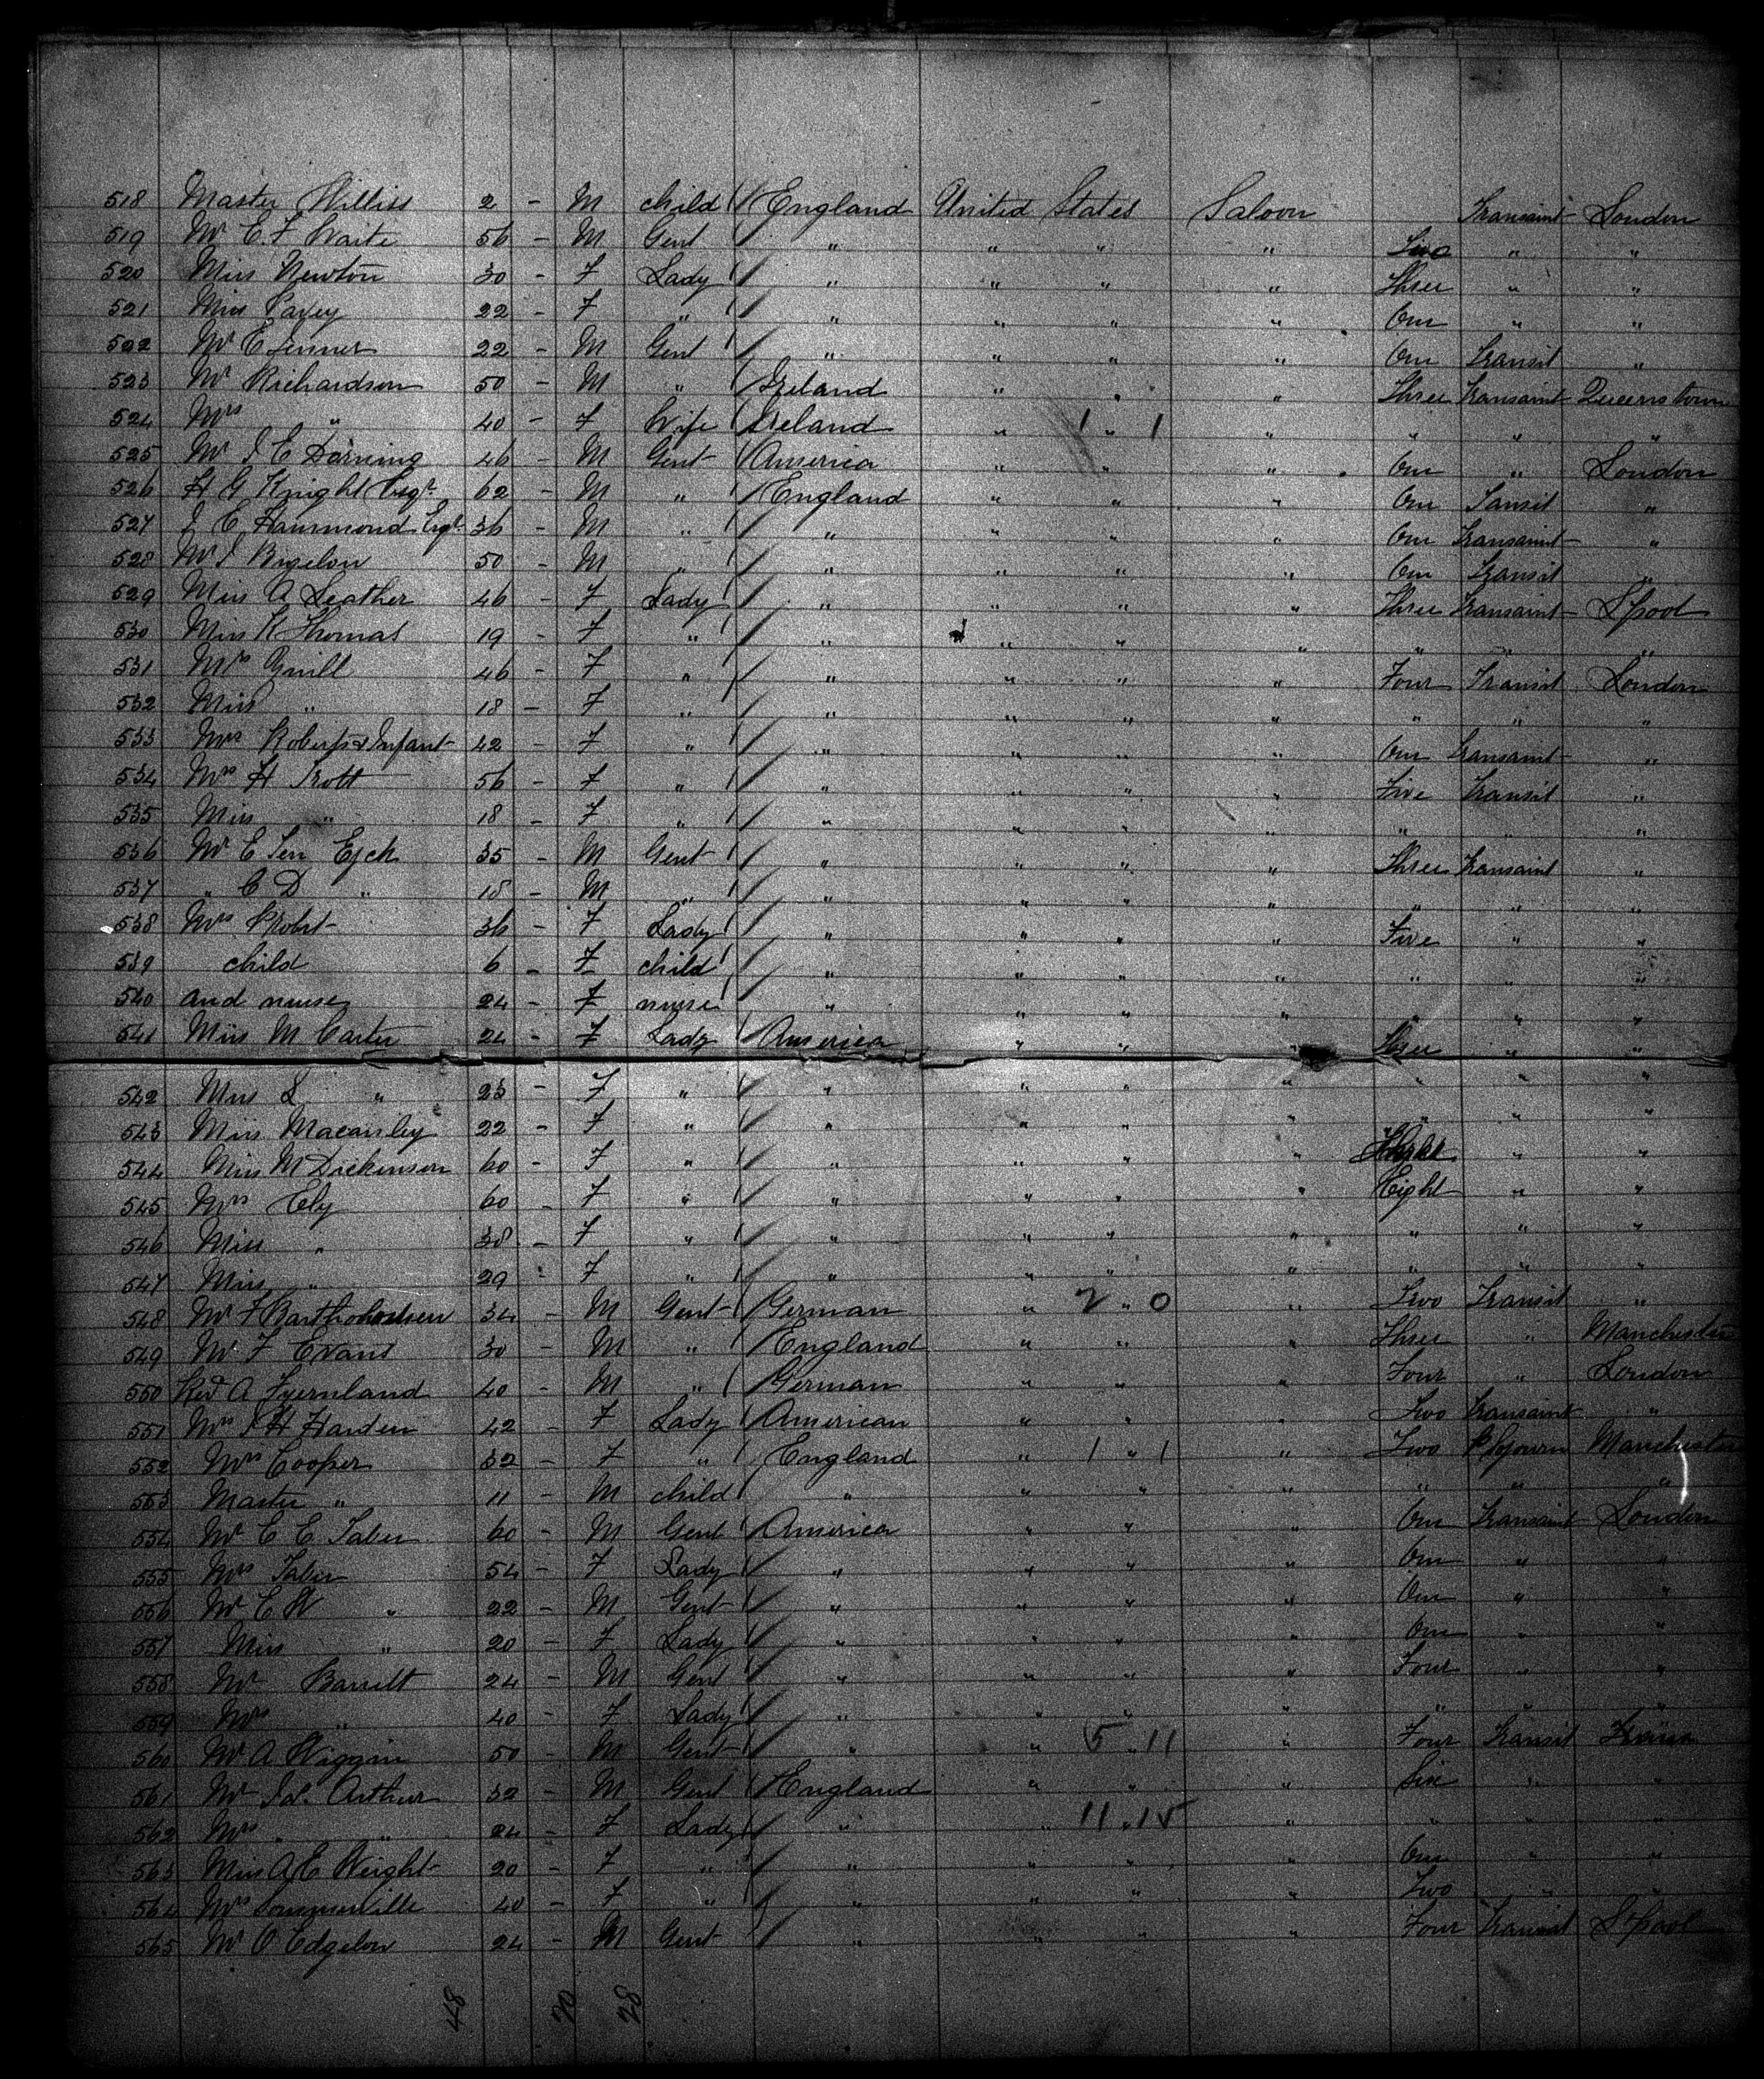 518 Master Williss 2 - M child England United States Saloon Transaint London
519 Mr E. F Waite 56 - M Gent " " " " Two " "
520 Miss Newton 30 - F Lady " " " " Three " "
521 Miss Pavey 22 - F " " " " " One " "
522 Mr E Jenner 22 - M Gent " " " " One Transit "
523 Mr Richardson 50 - M " Ireland " " " Three Transaint Queenstown
524 Mrs " 40 - F Wife Ireland " 1 " 1 " " " "
525 Mr J E Dorning 46 - M Gent America " " " One " London
526 H G Knight Esqr 62 - M " England " " " One Tansit "
527 J C Hammond Esqr 36 - M " " " " " One Transaint "
528 Mr J Bigelow 50 - M " " " " " One Transit "
529 Miss A Leather 46 - F Lady " " " " Three Transaint L'pool
530 Miss K Thomas 19 - F " " " " " " " "
531 Mrs 46 - F " " " " " Four Transit London
532 Miss " 18 - F " " " " " " " "
533 Mrs Roberts & Infant 42 - F " " " " " One Transaint "
534 Mrs H Trott 56 - F " " " " " Five Transit "
535 Miss " 18 - F " " " " " " " "
536 Mr E Ten Eyck 35 - M Gent " " " " Three Transaint "
537 " C D " 18 - M " " " " " " " "
538 Mrs Probst 36 - F Lady " " " " Five " "
539 child 6 - F child " " " " " " "
540 and nurse 24 - F nurse " " " " " " "
541 Miss M Carter 24 - F Lady America " " " Three " "
542 Miss L " 23 - F " " " " " " " "
543 Miss Macauley 22 - F " " " " " " "
544 Miss M Dickinson 60 - F " " " " " " "
545 Mrs Ely 60 - F " " " " " Eight " "
546 Miss " 38 - F " " " " " " " "
547 Miss " 29 - F " " " " " " " "
548 Mr F 34 - M Gent German " 2 " 0 " Two Transit "
549 Mr F Evans 30 - M " England " " " Three " Manchester
550 Revd A Fyernland 40 - M " German " " " Four " London
551 Mrs J H Harden 42 - F Lady American " " " Two Transaint "
552 Mrs Cooper 32 - F " England " 1 " 1 " Two Manchester
553 Master " 11 - M child " " " " " " "
554 Mr C E Taber 60 - M Gent America " " " One Transaint London
555 Mrs Taber 54 - F Lady " " " " One " "
556 Mr C W " 22 - M Gent " " " " One " "
557 Miss " 20 - F Lady " " " " One " "
558 Mr Barrett 24 - M Gent " " " " Four " "
559 Mrs " 40 - F Lady " " " " " " "
560 Mr A Wiggin 50 - M Gent " " 5 " 11 " Four Transit
561 Mr Arthur 32 - M Gent England " " " Six " "
562 Mrs " " 24 - F Lady " " 11 " 15 " " " "
563 Miss A E Weight 20 - F " " " " " One " "
564 Mrs Sommerville 40 - F " " " " " Two " "
565 Mr O Edgelow 24 - M Gent " " " " Four Transit L'pool
48 20 28